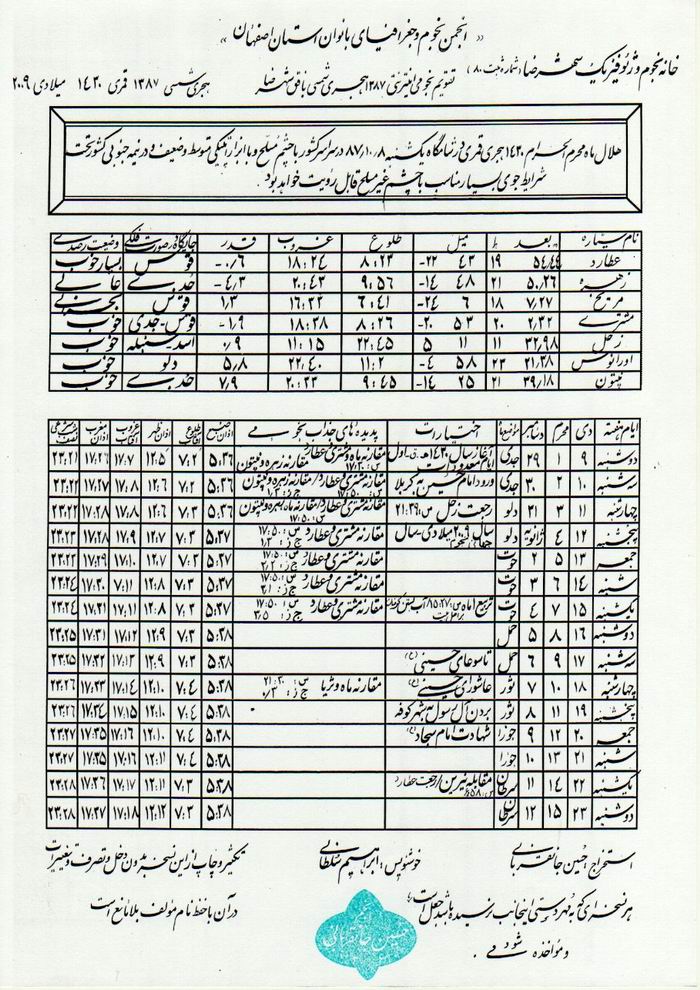 « انجمن نجوم و جغرافیای بانوان استان اصفهان »
خانه نجوم و ژئوفیزیک شهرضا (شماره ثبت ۸۰)
تقویم نجومی ۱۳۸۷ هجری شمسی با افق شهرضا
هجری شمسی ۱۳۸۷ قمری ۱۴۳۰ میلادی ۲۰۰۹
هلال ماه محرم الحرام ۱۴۳۰ هجری قمری در شامگاه یکشنبه ۸۷/۱۰/۸ در سراسر کشور با چشم مسلح و با ابزار اپتیکی متوسط و ضعیف و در نیمه جنوبی کشور تحت
شرایط جوی بسیار مناسب با چشم غیر مسلح قابل رویت خواهد بود.
نام سیاره بعد میل طلوع غروب قدر جایگاه در صورت فلکی وضعیت رصدی
عطارد ۱۹ ۵۴/۴۴ ۴۳ ۲۲- ۸:۲۳ ۱۸:۲۴ ۰/۶- قوس بسیار خوب
زهره ۲۱ ۵۰/۲۶ ۴۸ ۱۴- ۹:۵۶ ۲۰:۴۳ ۴/۳- جدی عالی
مریخ ۱۸ ۷/۲۷ ۶ ۲۴- ۶:۴۱ ۱۶:۲۲ ۱/۳ قوس
مشتری ۲۰ ۲/۳۲ ۵۳ ۲۰- ۸:۲۶ ۱۸:۳۸ ۱/۹- قوس-جدی خوب
زحل ۱۱ ۳۲/۹۸ ۱۱ ۵ ۲۲:۴۵ ۱۱:۱۵ ۰/۹ اسد-سنبله خوب
اورانوس ۲۳ ۲۱/۳۸ ۵۸ ۴- ۱۱:۲ ۲۲:۴۰ ۵/۸ دلو خوب
نپتون ۲۱ ۳۹/۱۸ ۲۵ ۱۴- ۹:۴۵ ۲۰:۳۳ ۷/۹ جدی خوب
ایام هفته دی محرم دسامبر اختیارات پدیده های جذاب نجومی اذان صبح طلوع آفتاب اذان ظهر غروب آفتاب اذان مغرب نیمه شرعی
دوشنبه ۹ ۱ ۲۹ جدی آغاز سال ۱۴۳۰ هـ.ق-اول مقارنه ماه و مشتری و عطارد مقارنه زهره و نپتون ۵:۳۶ ۷:۲ ۱۲:۵ ۱۷:۷ ۱۷:۲۶ ۲۳:۲۱
سه شنبه ۱۰ ۲ ۳۰ جدی ورود امام حسین به کربلا مقارنه مشتری و عطارد/مقارنه زهره و نپتون ۵:۳۶ ۷:۲ ۱۲:۶ ۱۷:۸ ۱۷:۲۷ ۲۳:۲۲
چهارشنبه ۱۱ ۳ ۳۱ دلو رجعت زحل س:۲۱:۳۹ مقارنه مشتری و عطارد/مقارنه ماه، زهره و نپتون ۵:۳۶ ۷:۳ ۱۲:۶ ۱۷:۸ ۱۷:۲۸ ۲۳:۲۲
پنجشنبه ۱۲ ۴ ژانویه دلو سال ۲۰۰۹ میلادی-سال جهانی نجوم مقارنه مشتری و عطارد س:۱۷:۵۰ ۵:۳۷ ۷:۳ ۱۲:۷ ۱۷:۹ ۱۷:۲۸ ۲۳:۲۳
جمعه ۱۳ ۵ ۲ حوت مقارنه مشتری و عطارد س:۱۷:۵۰ ۵:۳۷ ۷:۳ ۱۲:۷ ۱۷:۱۰ ۱۷:۲۹ ۲۳:۲۳
شنبه ۱۴ ۶ ۳ حوت مقارنه مشتری و عطارد س:۱۷:۵۰ ۵:۳۷ ۷:۳ ۱۲:۸ ۱۷:۱۱ ۱۷:۳۰ ۲۳:۲۴
یکشنبه ۱۵ ۷ ۴ حوت تربیع اول ماه مقارنه مشتری و عطارد س:۱۷:۵۰ ۵:۳۸ ۷:۳ ۱۲:۸ ۱۷:۱۱ ۱۷:۳۱ ۲۳:۲۴
دوشنبه ۱۶ ۸ ۵ حمل ۵:۳۸ ۷:۳ ۱۲:۹ ۱۷:۱۲ ۱۷:۳۱ ۲۳:۲۵
سه شنبه ۱۷ ۹ ۶ حمل تاسوعای حسینی (ع) ۵:۳۸ ۷:۳ ۱۲:۹ ۱۷:۱۳ ۱۷:۳۲ ۲۳:۲۵
چهارشنبه ۱۸ ۱۰ ۷ ثور عاشورای حسینی (ع) مقارنه ماه و ثریا س:۲۱:۳۰ ۵:۳۸ ۷:۴ ۱۲:۱۰ ۱۷:۱۴ ۱۷:۳۳ ۲۳:۲۶
پنجشنبه ۱۹ ۱۱ ۸ ثور بردن آل رسول به شهر کوفه ۵:۳۸ ۷:۴ ۱۲:۱۰ ۱۷:۱۵ ۱۷:۳۴ ۲۳:۲۶
جمعه ۲۰ ۱۲ ۹ جوزا شهادت امام سجاد (ع) ۵:۳۸ ۷:۴ ۱۲:۱۰ ۱۷:۱۶ ۱۷:۳۵ ۲۳:۲۷
شنبه ۲۱ ۱۳ ۱۰ جوزا ۵:۳۸ ۷:۴ ۱۲:۱۱ ۱۷:۱۶ ۱۷:۳۵ ۲۳:۲۷
یکشنبه ۲۲ ۱۴ ۱۱ سرطان مقابله نیرین/رجعت عطارد ۵:۳۸ ۷:۳ ۱۲:۱۱ ۱۷:۱۷ ۱۷:۳۶ ۲۳:۲۸
دوشنبه ۲۳ ۱۵ ۱۲ سرطان ۵:۳۸ ۷:۳ ۱۲:۱۲ ۱۷:۱۸ ۱۷:۳۷ ۲۳:۲۸
استخراج: حسین جانقربانی خوشنویس: ابراهیم سلطانی تکثیر و چاپ از این نسخه بدون دخل و تصرف و تغییرات
هر نسخه ای که به مهر دستی اینجانب نرسیده باشد جعل است در آن با حفظ نام مولف بلامانع است
و مواخذه می شود.
حسین جانقربانی